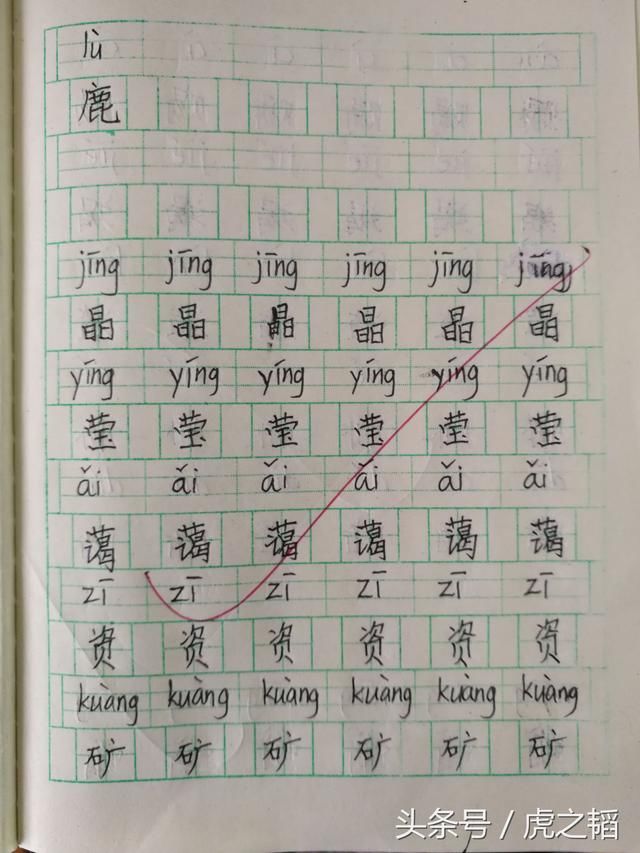 lù
鹿
jīng jīng jīng jīng jīng jīng
晶 晶 晶 晶 晶 晶
yīng yīng yīng yīng yīng yīng
莹 莹 莹 莹 莹 莹
ǎi ǎi ǎi ǎi ǎi ǎi
蔼 蔼 蔼 蔼 蔼 蔼
zī zī zī zī zī zī
资 资 资 资 资 资
kuàng kuàng kuàng kuàng kuàng kuàng
矿 矿 矿 矿 矿 矿
头条号 / 虎之韬